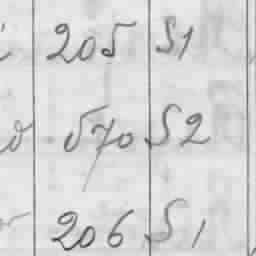 205 S1
570 S2
206 S1